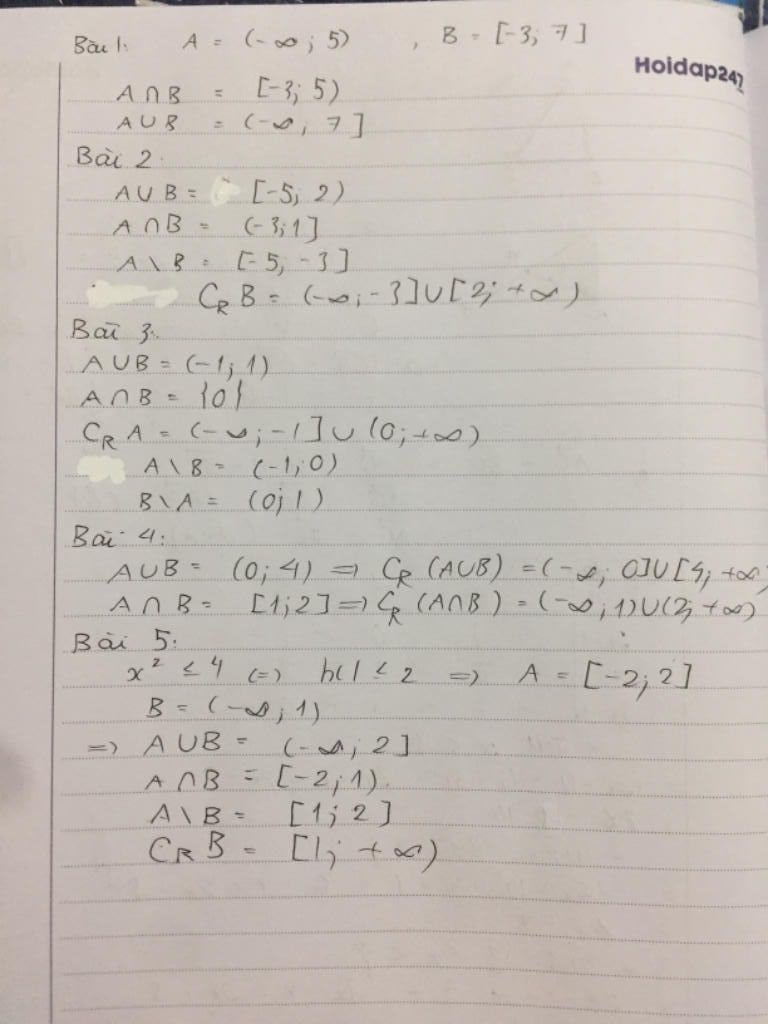 Bài 1: A = (-∞; 5) , B = [-3; 7]
Hoidap247
A∩B = [-3; 5)
A∪B = (-∞; 7]
Bài 2.
A∪B = [-5; 2)
A∩B = (-3; 1]
A\B = [-5; -3]
C_R B = (-∞; -3]∪[2; +∞)
Bài 3.
A∪B = (-1; 1)
A∩B = {0}
C_R A = (-∞; -1]∪(0; +∞)
A\B = (-1; 0)
B\A = (0; 1)
Bài 4:
A∪B = (0; 4) => C_R (A∪B) = (-∞; 0]∪[4; +∞)
A∩B = [1; 2] => C_R (A∩B) = (-∞; 1)∪(2; +∞)
Bài 5:
x² ≤ 4 (=) |x| ≤ 2 => A = [-2; 2]
B = (-∞; 1)
=> A∪B = (-∞; 2]
A∩B = [-2; 1)
A\B = [1; 2]
C_R B = [1; +∞)